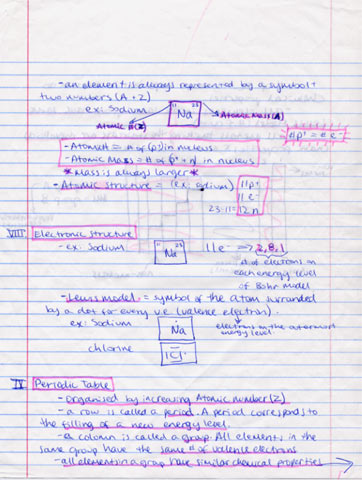 - an element is always represented by a symbol +
two numbers (A + Z)
ex: Sodium
11 Na 23
Atomic # (Z)
Atomic Mass (A)
# p⁺ = # e⁻
- Atom # = # of (p⁺) in nucleus
- Atomic Mass = # of p⁺ + n in nucleus
* Mass is always larger *
- Atomic structure = (ex: sodium)
11 p⁺
11 e⁻
23-11 = 12 n
VIII Electronic structure
- ex: Sodium
11 Na 23
11 e⁻ ⇒ 2, 8, 1
# of electrons in
each energy level
of Bohr model
- Lewis model = symbol of the atom surranded
by a dot for every v.e. (valence electron).
ex: Sodium
Na
electrons in the outermost
energy level.
chlorine
Cl
IV Periodic Table
- Organised by increasing Atomic number (Z)
- a row is called a period. A period corresponds to
the filling of a new energy level.
- a column is called a group. All elements in the
same group have the same # of valence electrons
- all elements in a group have similar chemical properties